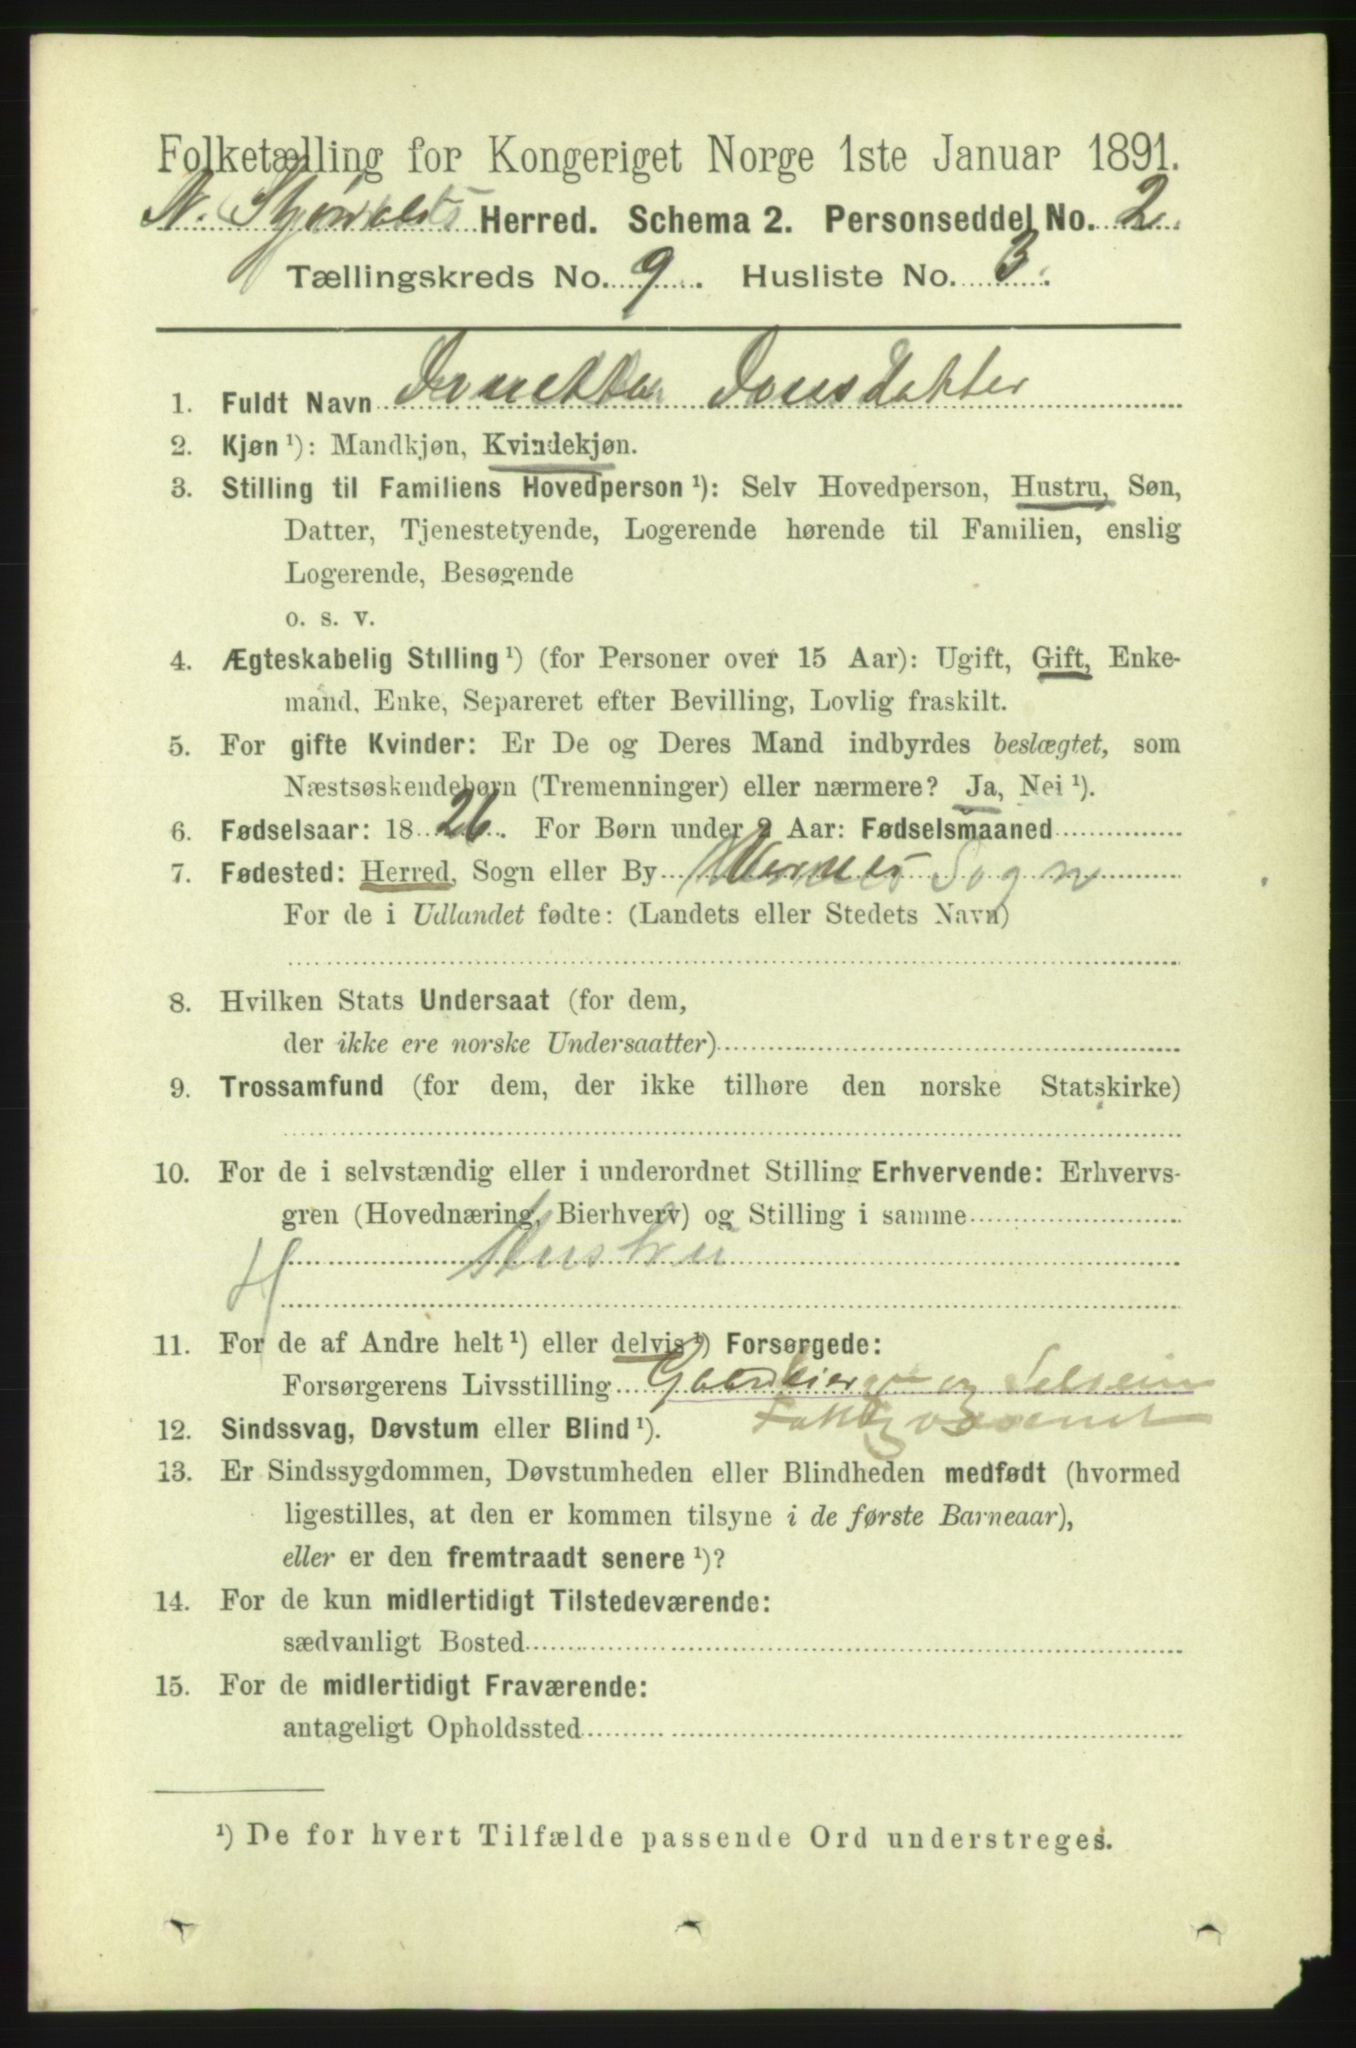 Folketælling for Kongeriget Norge 1ste Januar 1891.
N. Stjørdals Herred. Schema 2. Personseddel No. 2.
Tællingskreds No. 9. Husliste No. 3.
1. Fuldt Navn Jonsdatter
2. Kjøn ¹): Mandkjøn, Kvindekjøn.
3. Stilling til Familiens Hovedperson ¹): Selv Hovedperson, Hustru, Søn,
Datter, Tjenestetyende, Logerende hørende til Familien, enslig
Logerende, Besøgende
o. s. v.
4. Ægteskabelig Stilling ¹) (for Personer over 15 Aar): Ugift, Gift, Enke-
mand, Enke, Separeret efter Bevilling, Lovlig fraskilt.
5. For gifte Kvinder: Er De og Deres Mand indbyrdes beslægtet, som
Næstsøskendebørn (Tremenninger) eller nærmere? Ja, Nei ¹).
6. Fødselsaar: 1826. For Børn under 2 Aar: Fødselsmaaned
7. Fødested: Herred, Sogn eller By Værnes Sogn
For de i Udlandet fødte: (Landets eller Stedets Navn)
8. Hvilken Stats Undersaat (for dem,
der ikke ere norske Undersaatter)
9. Trossamfund (for dem, der ikke tilhøre den norske Statskirke)
10. For de i selvstændig eller i underordnet Stilling Erhvervende: Erhvervs-
gren (Hovednæring, Bierhverv) og Stilling i samme
Hustru
H
11. For de af Andre helt ¹) eller delvis ¹) Forsørgede:
Forsørgerens Livsstilling og Selveier
12. Sindssvag, Døvstum eller Blind ¹).
13. Er Sindssygdommen, Døvstumheden eller Blindheden medfødt (hvormed
ligestilles, at den er kommen tilsyne i de første Barneaar),
eller er den fremtraadt senere ¹)?
14. For de kun midlertidigt Tilstedeværende:
sædvanligt Bosted
15. For de midlertidigt Fraværende:
antageligt Opholdssted
¹) De for hvert Tilfælde passende Ord understreges.